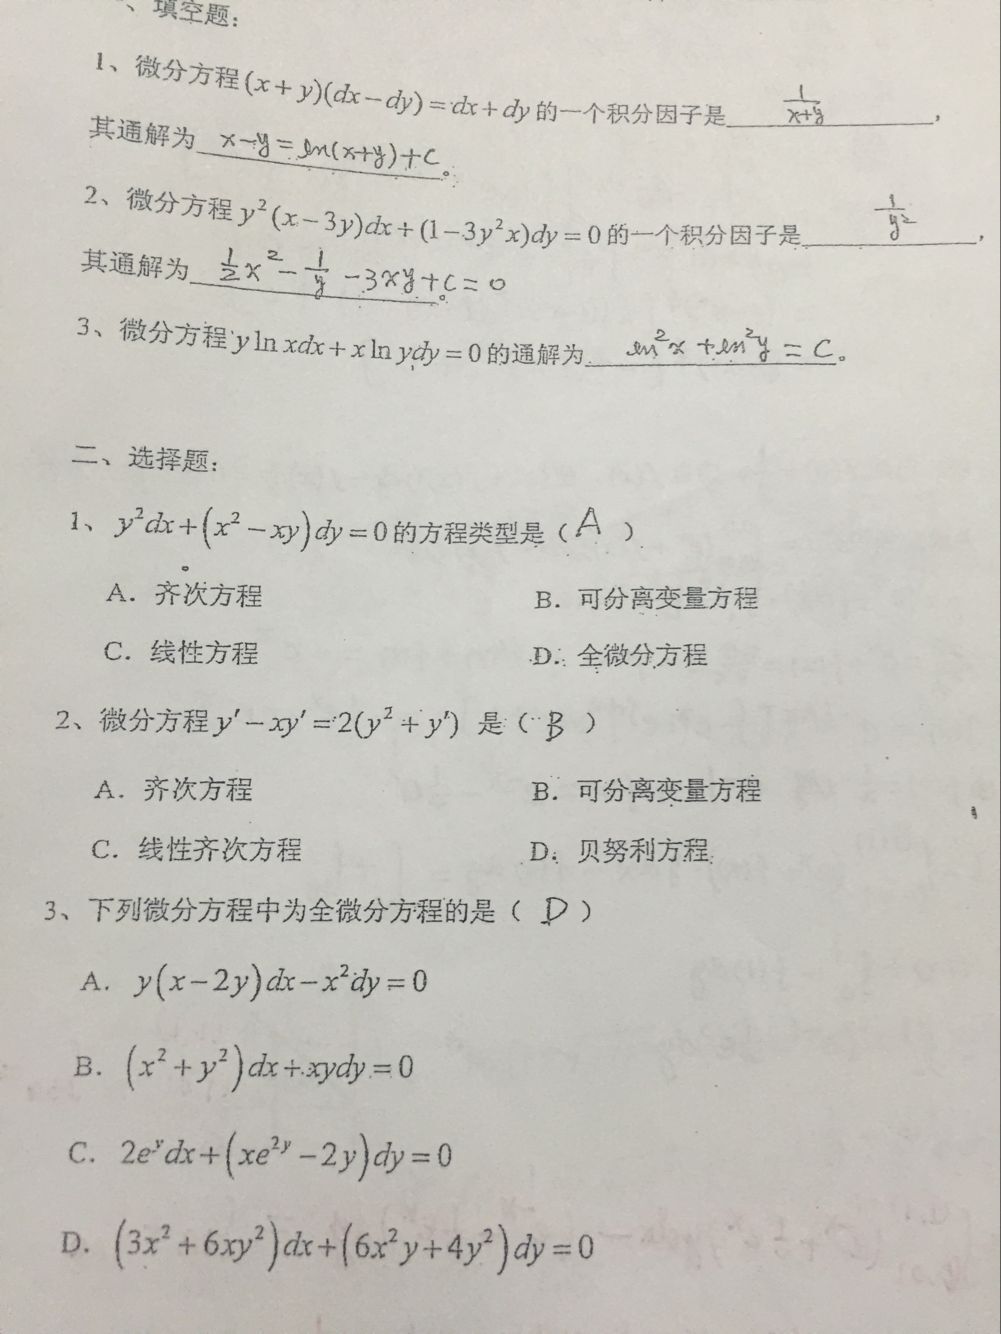 、填空题：
1、微分方程(x+y)(dx−dy)=dx+dy的一个积分因子是 1/(x+y) ，
其通解为 x−y=ln(x+y)+C 。
2、微分方程y²(x−3y)dx+(1−3y²x)dy=0的一个积分因子是 1/y² ，
其通解为 ½x²−1/y−3xy+C=0 。
3、微分方程y ln xdx+x ln ydy=0的通解为 ln²x+ln²y=C 。
二、选择题：
1、y²dx+(x²−xy)dy=0的方程类型是（ A ）
A．齐次方程 B．可分离变量方程
C．线性方程 D．全微分方程
2、微分方程y′−xy′=2(y²+y′) 是（ B ）
A．齐次方程 B．可分离变量方程
C．线性齐次方程 D．贝努利方程
3、下列微分方程中为全微分方程的是（ D ）
A．y(x−2y)dx−x²dy=0
B．(x²+y²)dx+xydy=0
C．2eʸdx+(xe²ʸ−2y)dy=0
D．(3x²+6xy²)dx+(6x²y+4y²)dy=0